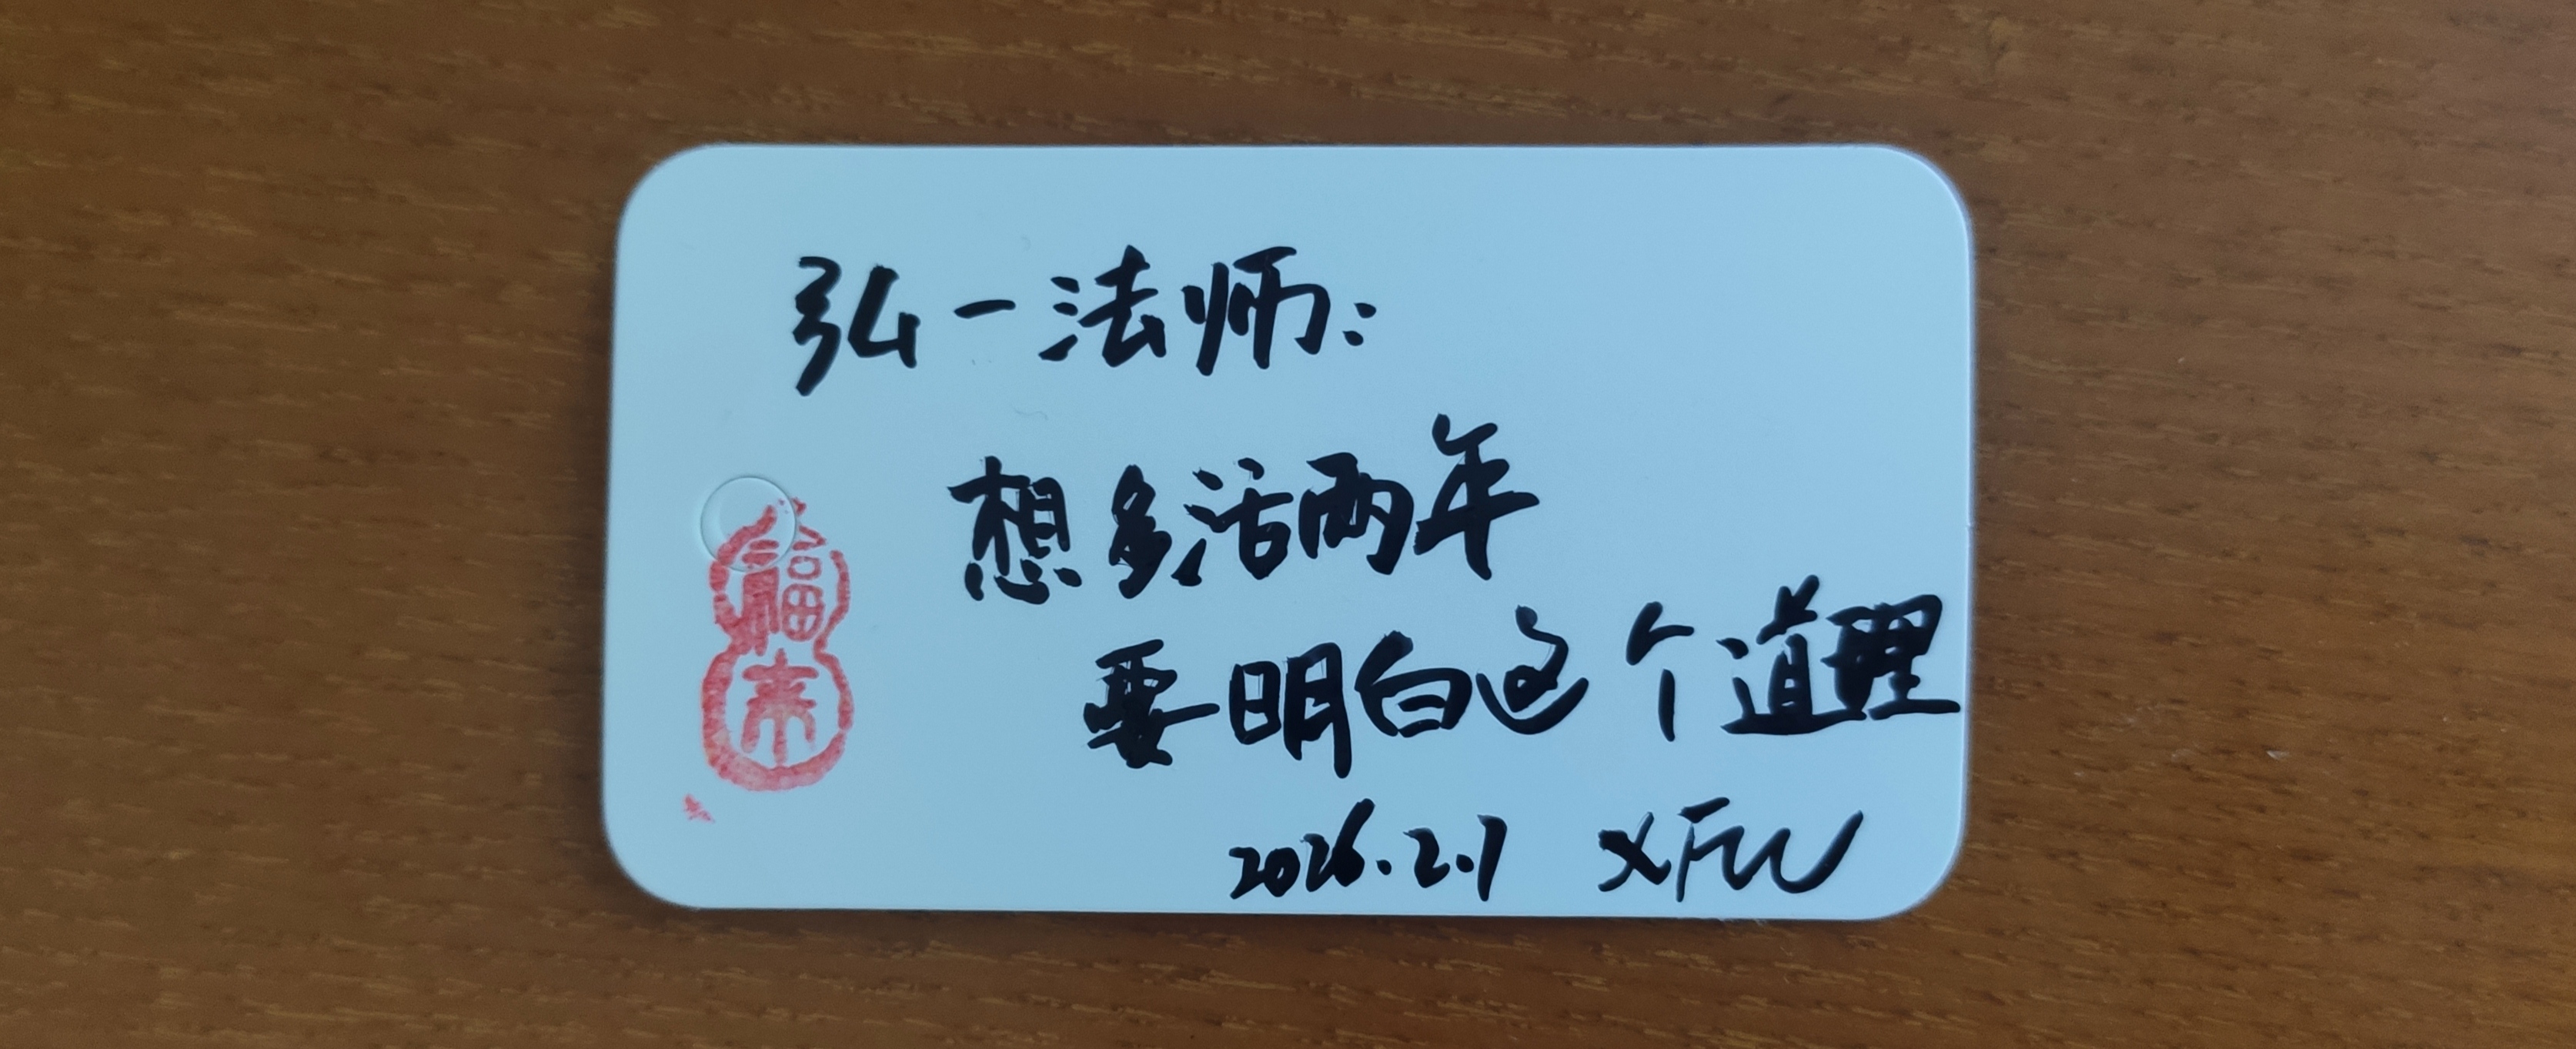 弘一法师：
想多活两年
要明白这个道理
2026.2.1 XFW
福
来